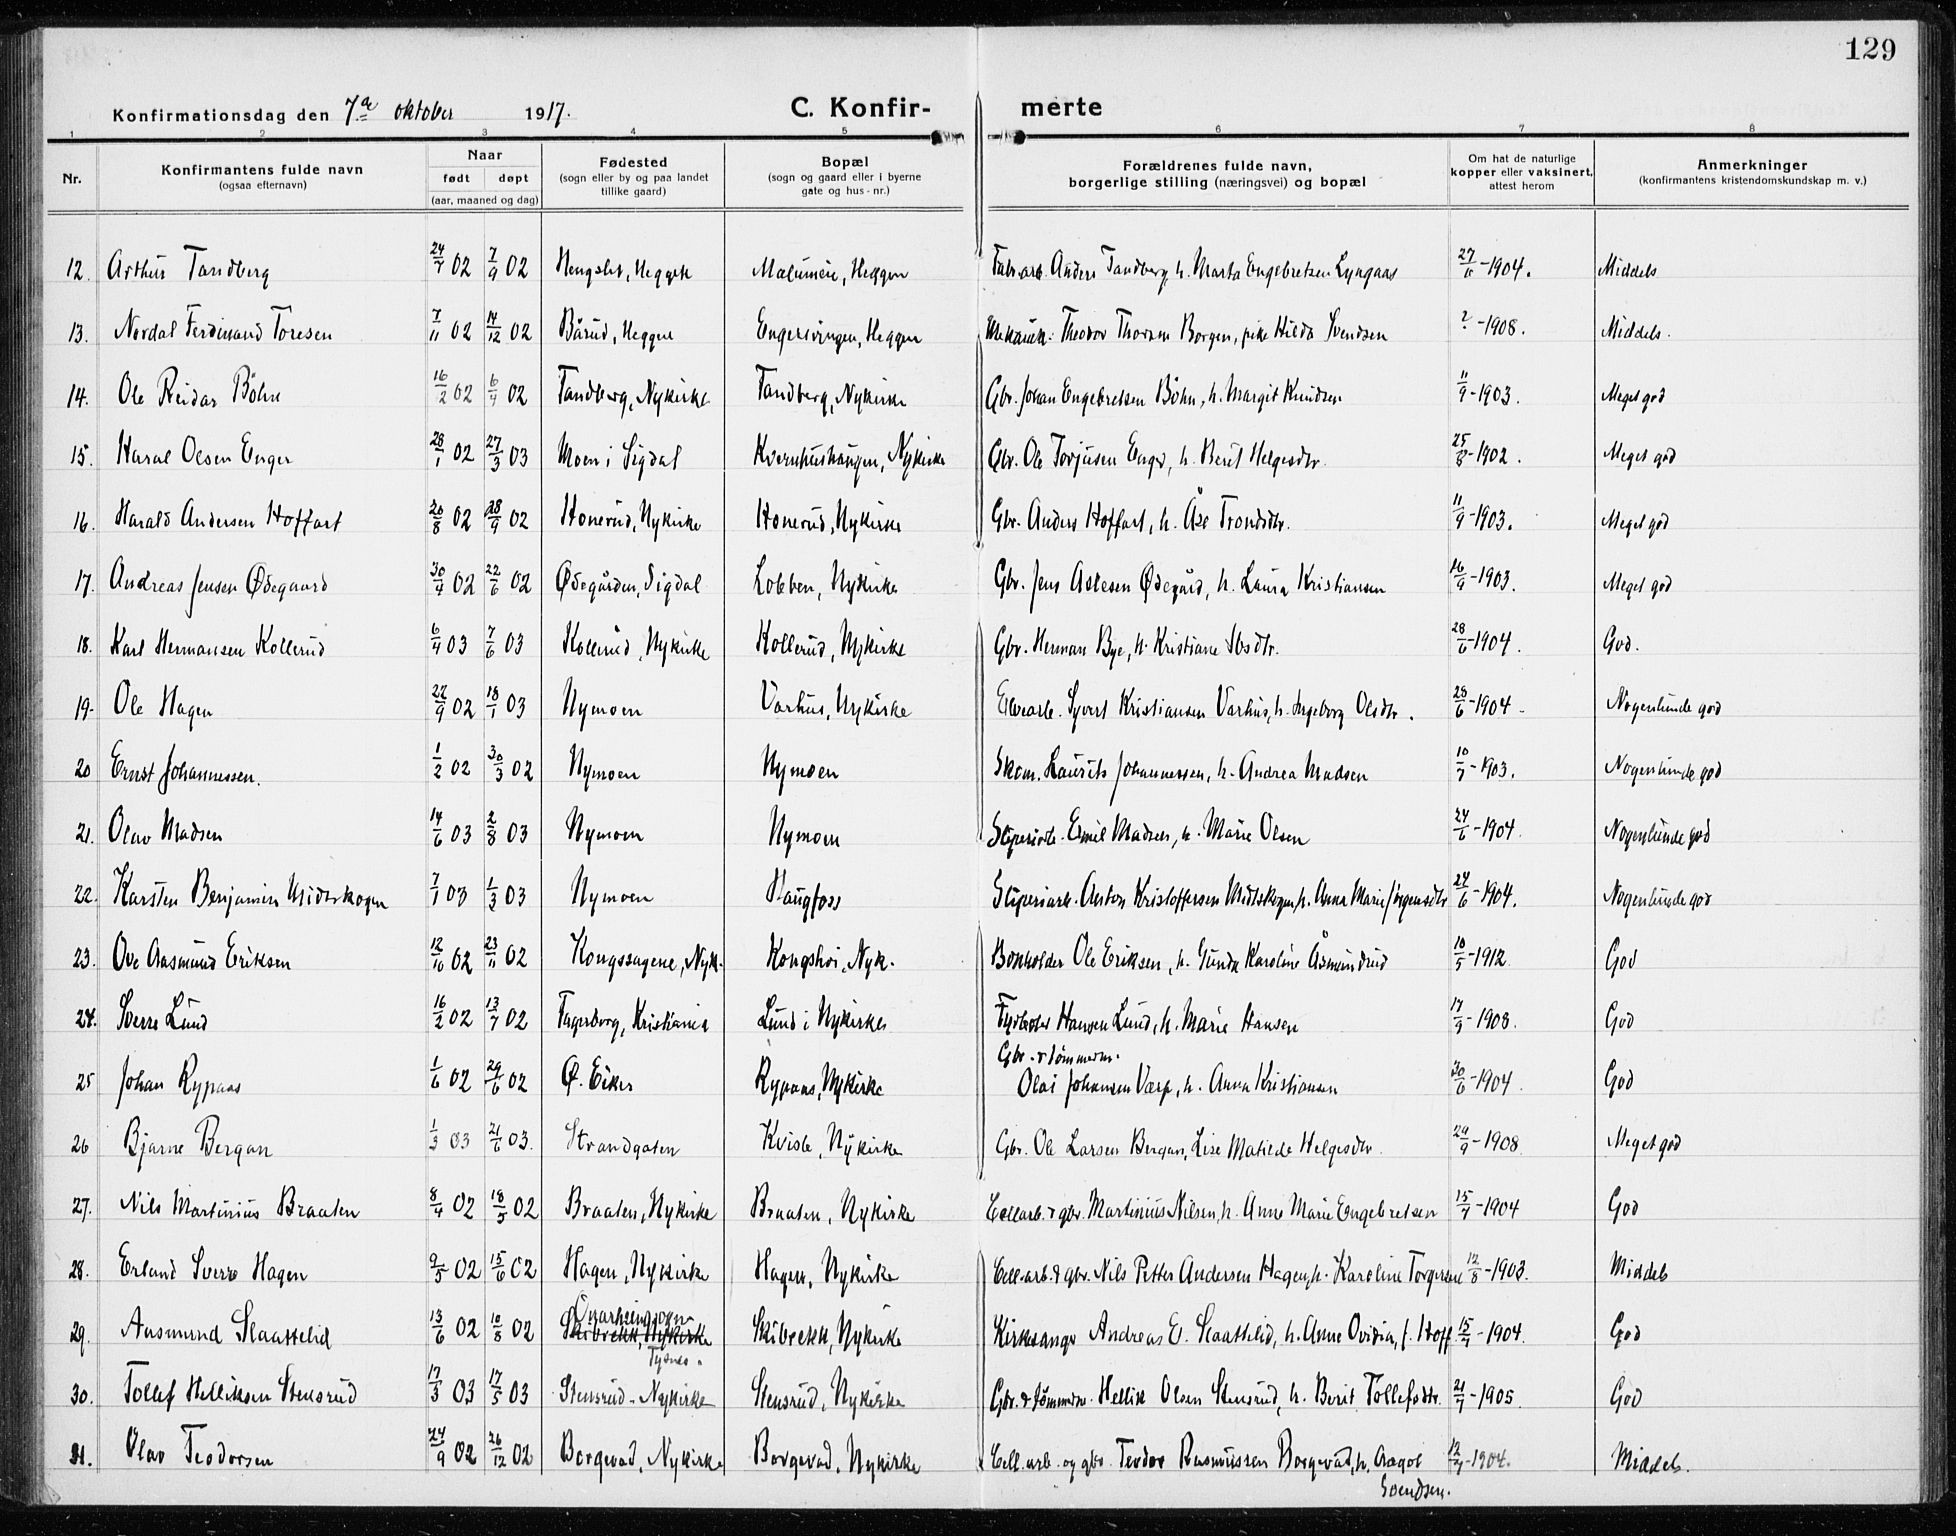 129
Konfirmationsdag den 7de oktober 1917. C. Konfir- merte
1 2 3 4 5 6 7 8
Nr. Konfirmantens fulde navn (ogsaa efternavn) Naar født døpt (aar, maaned og dag) Fødested (sogn eller by og paa landet tillike gaard) Bopæl (sogn og gaard eller i byerne gate og hus-nr.) Forældrenes fulde navn, borgerlige stilling (næringsvei) og bopæl Om hat de naturlige kopper eller vaksinert, attest herom Anmerkninger (konfirmantens kristendomskundskap m. v.)
12. Arthur Tandberg 24/7 02 7/9 02 Hengsle, Heggen Heggen Fabr.arb. Anders Tandberg, h. Marta Engebretsen Lyngaas 27/6-1904. Middels
13. Nordal Ferdinand Toresen 7/11 02 14/12 02 Bårud, Heggen Engersvingen, Heggen Mekanik: Theodor Thorsen Borgen, pike Hilda Svendsen ?-1908. Middels.
14. Ole Reidar Böhn 16/2 02 6/4 02 Tandberg, Nykirke Tandberg, Nykirke Gbr. Johan Engebretsen Böhn, h. Margit Knudsen 11/9-1903. Meget god
15. Haral Olsen Enger 28/1 02 27/3 03 Moen i Sigdal Kvernhushaugen, Nykirke Gbr. Ole Torjusen Enger, h. Berit Helgesdtr. 25/8-1902. Meget god
16. Harald Andersen Hoffart 20/8 02 28/9 02 Honerud, Nykirke Honerud, Nykirke Gbr. Anders Hoffart, h. Åse Trondsdtr. 11/9-1903. Meget god
17. Andreas Jensen Ødegaard 30/4 02 22/6 02 Ødegården, Sigdal Lobben, Nykirke Gbr. Jens Aslesen Ødegård, h. Laura Kristiansen 16/9-1903. Meget god
18. Karl Hermansen Kollerud 6/4 03 7/6 03 Kollerud, Nykirke Kollerud, Nykirke Gbr. Herman Bye, h. Kristiane 28/6-1904. God.
19. Ole Hagen 22/9 02 18/1 03 Nymoen Varhus, Nykirke Elvearb. Syvert Kristiansen Varhus, h. Ingeborg Olsdtr. 28/6-1904. Nogenlunde god
20 Ernst Johannessen. 1/2 02 30/3 02 Nymoen Nymoen Skom. Laurits Johannessen, h. Andrea Madsen 10/7-1903. Nogenlunde god
21. Olav Madsen 14/6 03 2/8 03 Nymoen Nymoen Sliperiarb. Emil Madsen, h. Marie Olsen 24/6-1904. Nogenlunde god
22. Karsten Benjamin Midtskogen 7/1 03 1/3 03 Nymoen Haugfoss Sliperiarb. Anton Kristoffersen Midtskogen, h. Anna Marie Jørgensdtr 24/6-1904. Nogenlunde god
23. Ove Aasmund Eriksen 12/10 02 23/11 02 Kongssagene, Nyk. Kongshoi, Nyk. Bokholder Ole Eriksen, h. Gunda Karoline Åsmundrud 10/5-1912 God
24. Sverre Lund 16/2 02 13/7 02 Fagerborg, Kristiania Lund i Nykirke Fyrbøter Hansen Lund, h. Marie Hansen 17/9-1908. God
Gbr. & tømmerm.
25 Johan Rypaas 1/6 02 29/6 02 Ø. Eiker Rypaas, Nykirke Olai Johansen Værp, h. Anna Kristiansen 30/6-1904. God
26 Bjarne Bergan 1/3 03 21/6 03. Strandgaten Kvisle, Nykirke Gbr. Ole Larsen Bergan, Lise Matilde Helgesdtr. 29/9-1908 Meget god
27. Nils Martinius Braaten 8/4 02 18/5 02 Braaten, Nykirke Braaten, Nykirke Cellarb. & gbr. Martinius Nilsen, h. Anne Marie Engebretsen 15/7-1904 God
28. Erland Sverre Hagen 9/5 02 15/6 02 Hagen, Nykirke Hagen, Nykirke Cell.arb. & gbr. Nils Petter Andersen Hagen, h. Karoline Torgersen 12/8-1903. Middels
29. Aasmund Slaattelid 13/6 02 10/8 02 Skibrekk, Nykirke Tysnes. Skibrekk, Nykirke Kirkesanger Andreas E. Slaattelid, h. Anne Ovidia, f. Hoff 15/7-1904. God
30. Tollef Helliksen Stensrud 17/3 03 17/5 03 Stensrud, Nykirke Stensrud, Nykirke Gbr. & tømmerm. Hellik Olsen Stensrud, h. Berit Tollefsdtr. 21/7-1905 God
31. Olav Teodorsen 24/9 02 26/12 02 Borgevad, Nykirke Borgevad, Nykirke Cell.arb. og gbr. Teodor Rasmussen Borgevad, h. Aagot Svendsen. 12/7-1904. Middels.